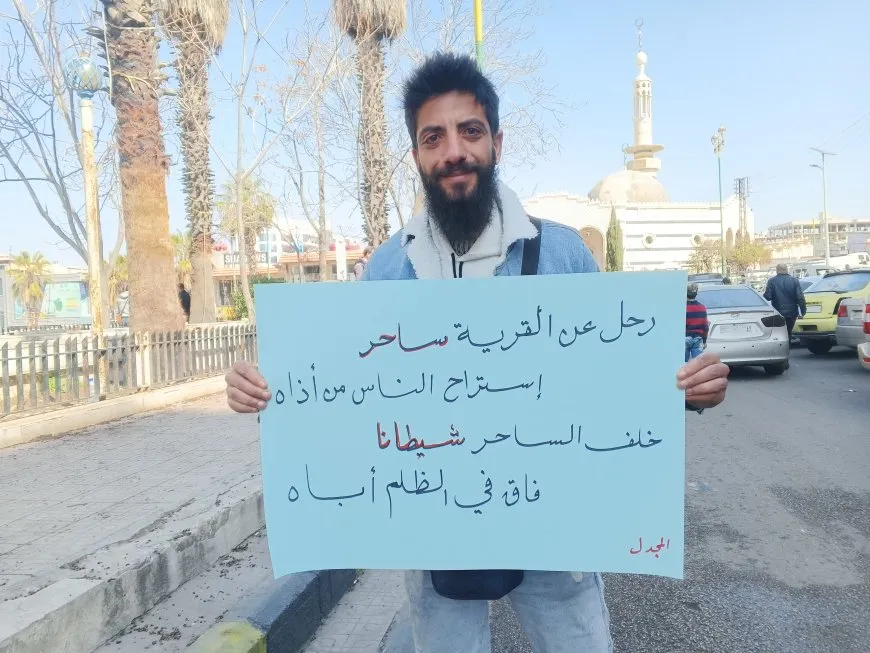 رحل عن القرية ساحر
إستراح الناس من أذاه
خلف الساحر شيطانا
فاق في الظلم أباه
المجدل